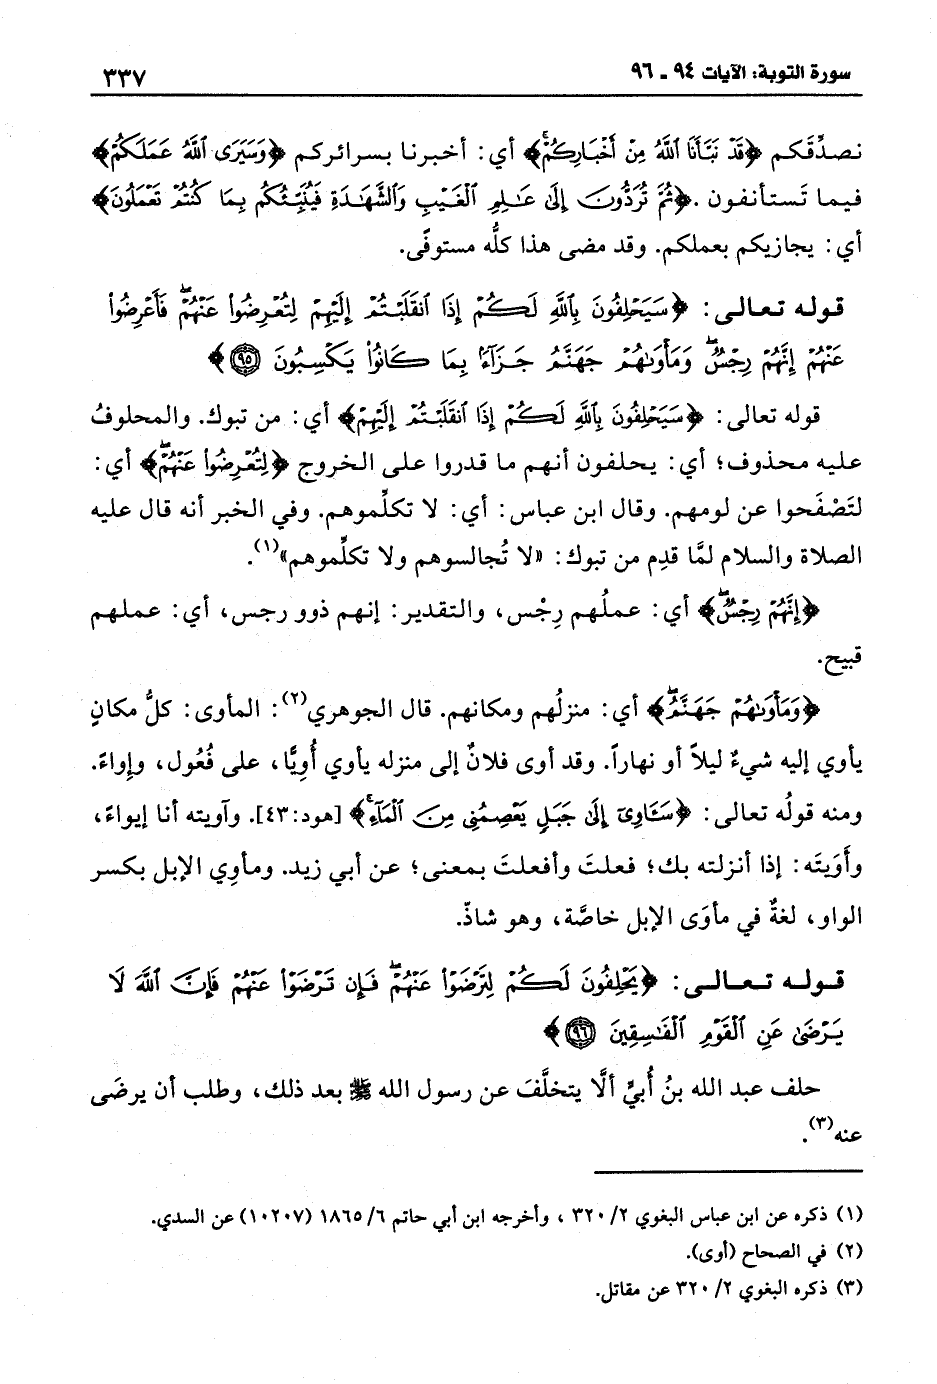 سورة التوبة: الآيات ٩٤ ـ ٩٦
٣٣٧
نصدِّقكم ﴿قَدْ نَبَّأَنَا ٱللَّهُ مِنْ أَخْبَارِكُمْۚ﴾ أي: أخبرنا بسرائركم ﴿وَسَيَرَى ٱللَّهُ عَمَلَكُمْ﴾
فيما تَستأنفون. ﴿ثُمَّ تُرَدُّونَ إِلَىٰ عَٰلِمِ ٱلْغَيْبِ وَٱلشَّهَٰدَةِ فَيُنَبِّئُكُم بِمَا كُنتُمْ تَعْمَلُونَ﴾
أي: يجازيكم بعملكم. وقد مضى هذا كلُّه مستوفًى.
قوله تعالى: ﴿سَيَحْلِفُونَ بِٱللَّهِ لَكُمْ إِذَا ٱنقَلَبْتُمْ إِلَيْهِمْ لِتُعْرِضُوا۟ عَنْهُمْۖ فَأَعْرِضُوا۟
عَنْهُمْۖ إِنَّهُمْ رِجْسٌۖ وَمَأْوَىٰهُمْ جَهَنَّمُ جَزَآءًۢ بِمَا كَانُوا۟ يَكْسِبُونَ ٩٥﴾
قوله تعالى: ﴿سَيَحْلِفُونَ بِٱللَّهِ لَكُمْ إِذَا ٱنقَلَبْتُمْ إِلَيْهِمْ﴾ أي: من تبوك. والمحلوفُ
عليه محذوف؛ أي: يحلفون أنهم ما قدروا على الخروج ﴿لِتُعْرِضُوا۟ عَنْهُمْۖ﴾ أي:
لتَصْفَحوا عن لومهم. وقال ابن عباس: أي: لا تكلِّموهم. وفي الخبر أنه قال عليه
الصلاة والسلام لمَّا قدِم من تبوك: «لا تُجالسوهم ولا تكلِّموهم»(١).
﴿إِنَّهُمْ رِجْسٌۖ﴾ أي: عملُهم رِجْس، والتقدير: إنهم ذوو رجس، أي: عملهم
قبيح.
﴿وَمَأْوَىٰهُمْ جَهَنَّمُۖ﴾ أي: منزلُهم ومكانهم. قال الجوهري(٢): المأوى: كلُّ مكانٍ
يأوي إليه شيءٌ ليلاً أو نهاراً. وقد أوى فلانٌ إلى منزله يأوي أُوِيًّا، على فُعُول، وإواءً.
ومنه قولُه تعالى: ﴿سَـَٔاوِىٓ إِلَىٰ جَبَلٍ يَعْصِمُنِى مِنَ ٱلْمَآءِۚ﴾ [هود:٤٣]. وآويته أنا إيواءً،
وأَوَيتَه: إذا أنزلته بك؛ فعلتَ وأفعلتَ بمعنى؛ عن أبي زيد. ومأوِي الإبل بكسر
الواو، لغةٌ في مأوَى الإبل خاصَّة، وهو شاذّ.
قوله تعالى: ﴿يَحْلِفُونَ لَكُمْ لِتَرْضَوْا۟ عَنْهُمْۖ فَإِن تَرْضَوْا۟ عَنْهُمْ فَإِنَّ ٱللَّهَ لَا
يَرْضَىٰ عَنِ ٱلْقَوْمِ ٱلْفَٰسِقِينَ ٩٦﴾
حلف عبد الله بنُ أُبيٍّ ألَّا يتخلَّفَ عن رسول الله ﷺ بعد ذلك، وطلب أن يرضَى
عنه(٣).
(١) ذكره عن ابن عباس البغوي ٢/ ٣٢٠ ، وأخرجه ابن أبي حاتم ٦/ ١٨٦٥ (١٠٢٠٧) عن السدي.
(٢) في الصحاح (أوى).
(٣) ذكره البغوي ٢/ ٣٢٠ عن مقاتل.